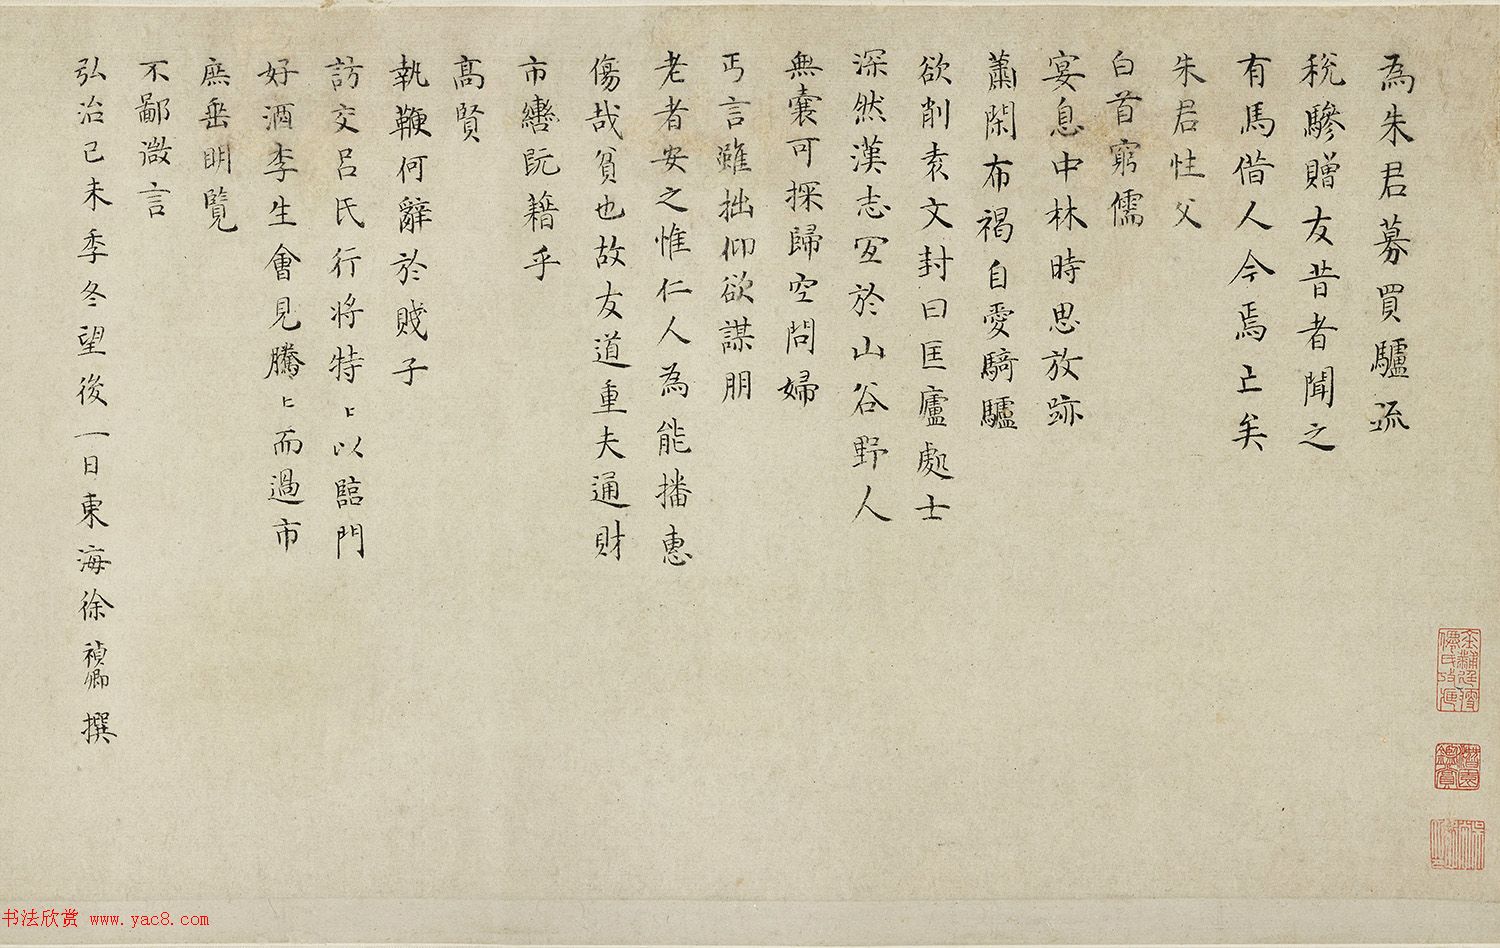 為朱君募買驢疏
稅驂贈友昔者聞之
有馬借人今焉亡矣
朱君性父
白首窮儒
宴息中林時思放跡
蕭閑布褐自愛騎驢
欲削表文封曰匡廬處士
深然漢志宜於山谷野人
無囊可探歸空問婦
丐言雖拙仰欲謀朋
老者安之惟仁人為能播惠
傷哉貧也故友道重夫通財
市轡阮籍乎
高賢
執鞭何辭於賤子
訪交呂氏行將特〻以臨門
好酒李生會見騰〻而過市
庶垂明覽
不鄙微言
弘治己未季冬望後一日東海徐禎卿撰
书法欣赏 www.yac8.com